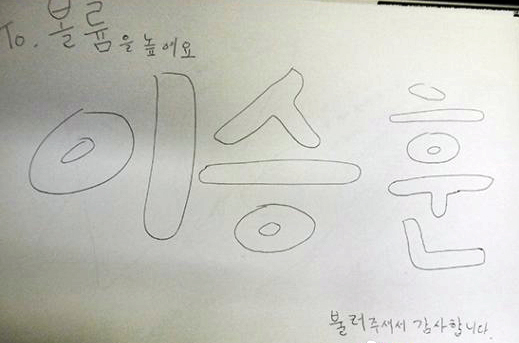 To. 볼륨을 높여요
이승훈
불러주세서 감사합니다.